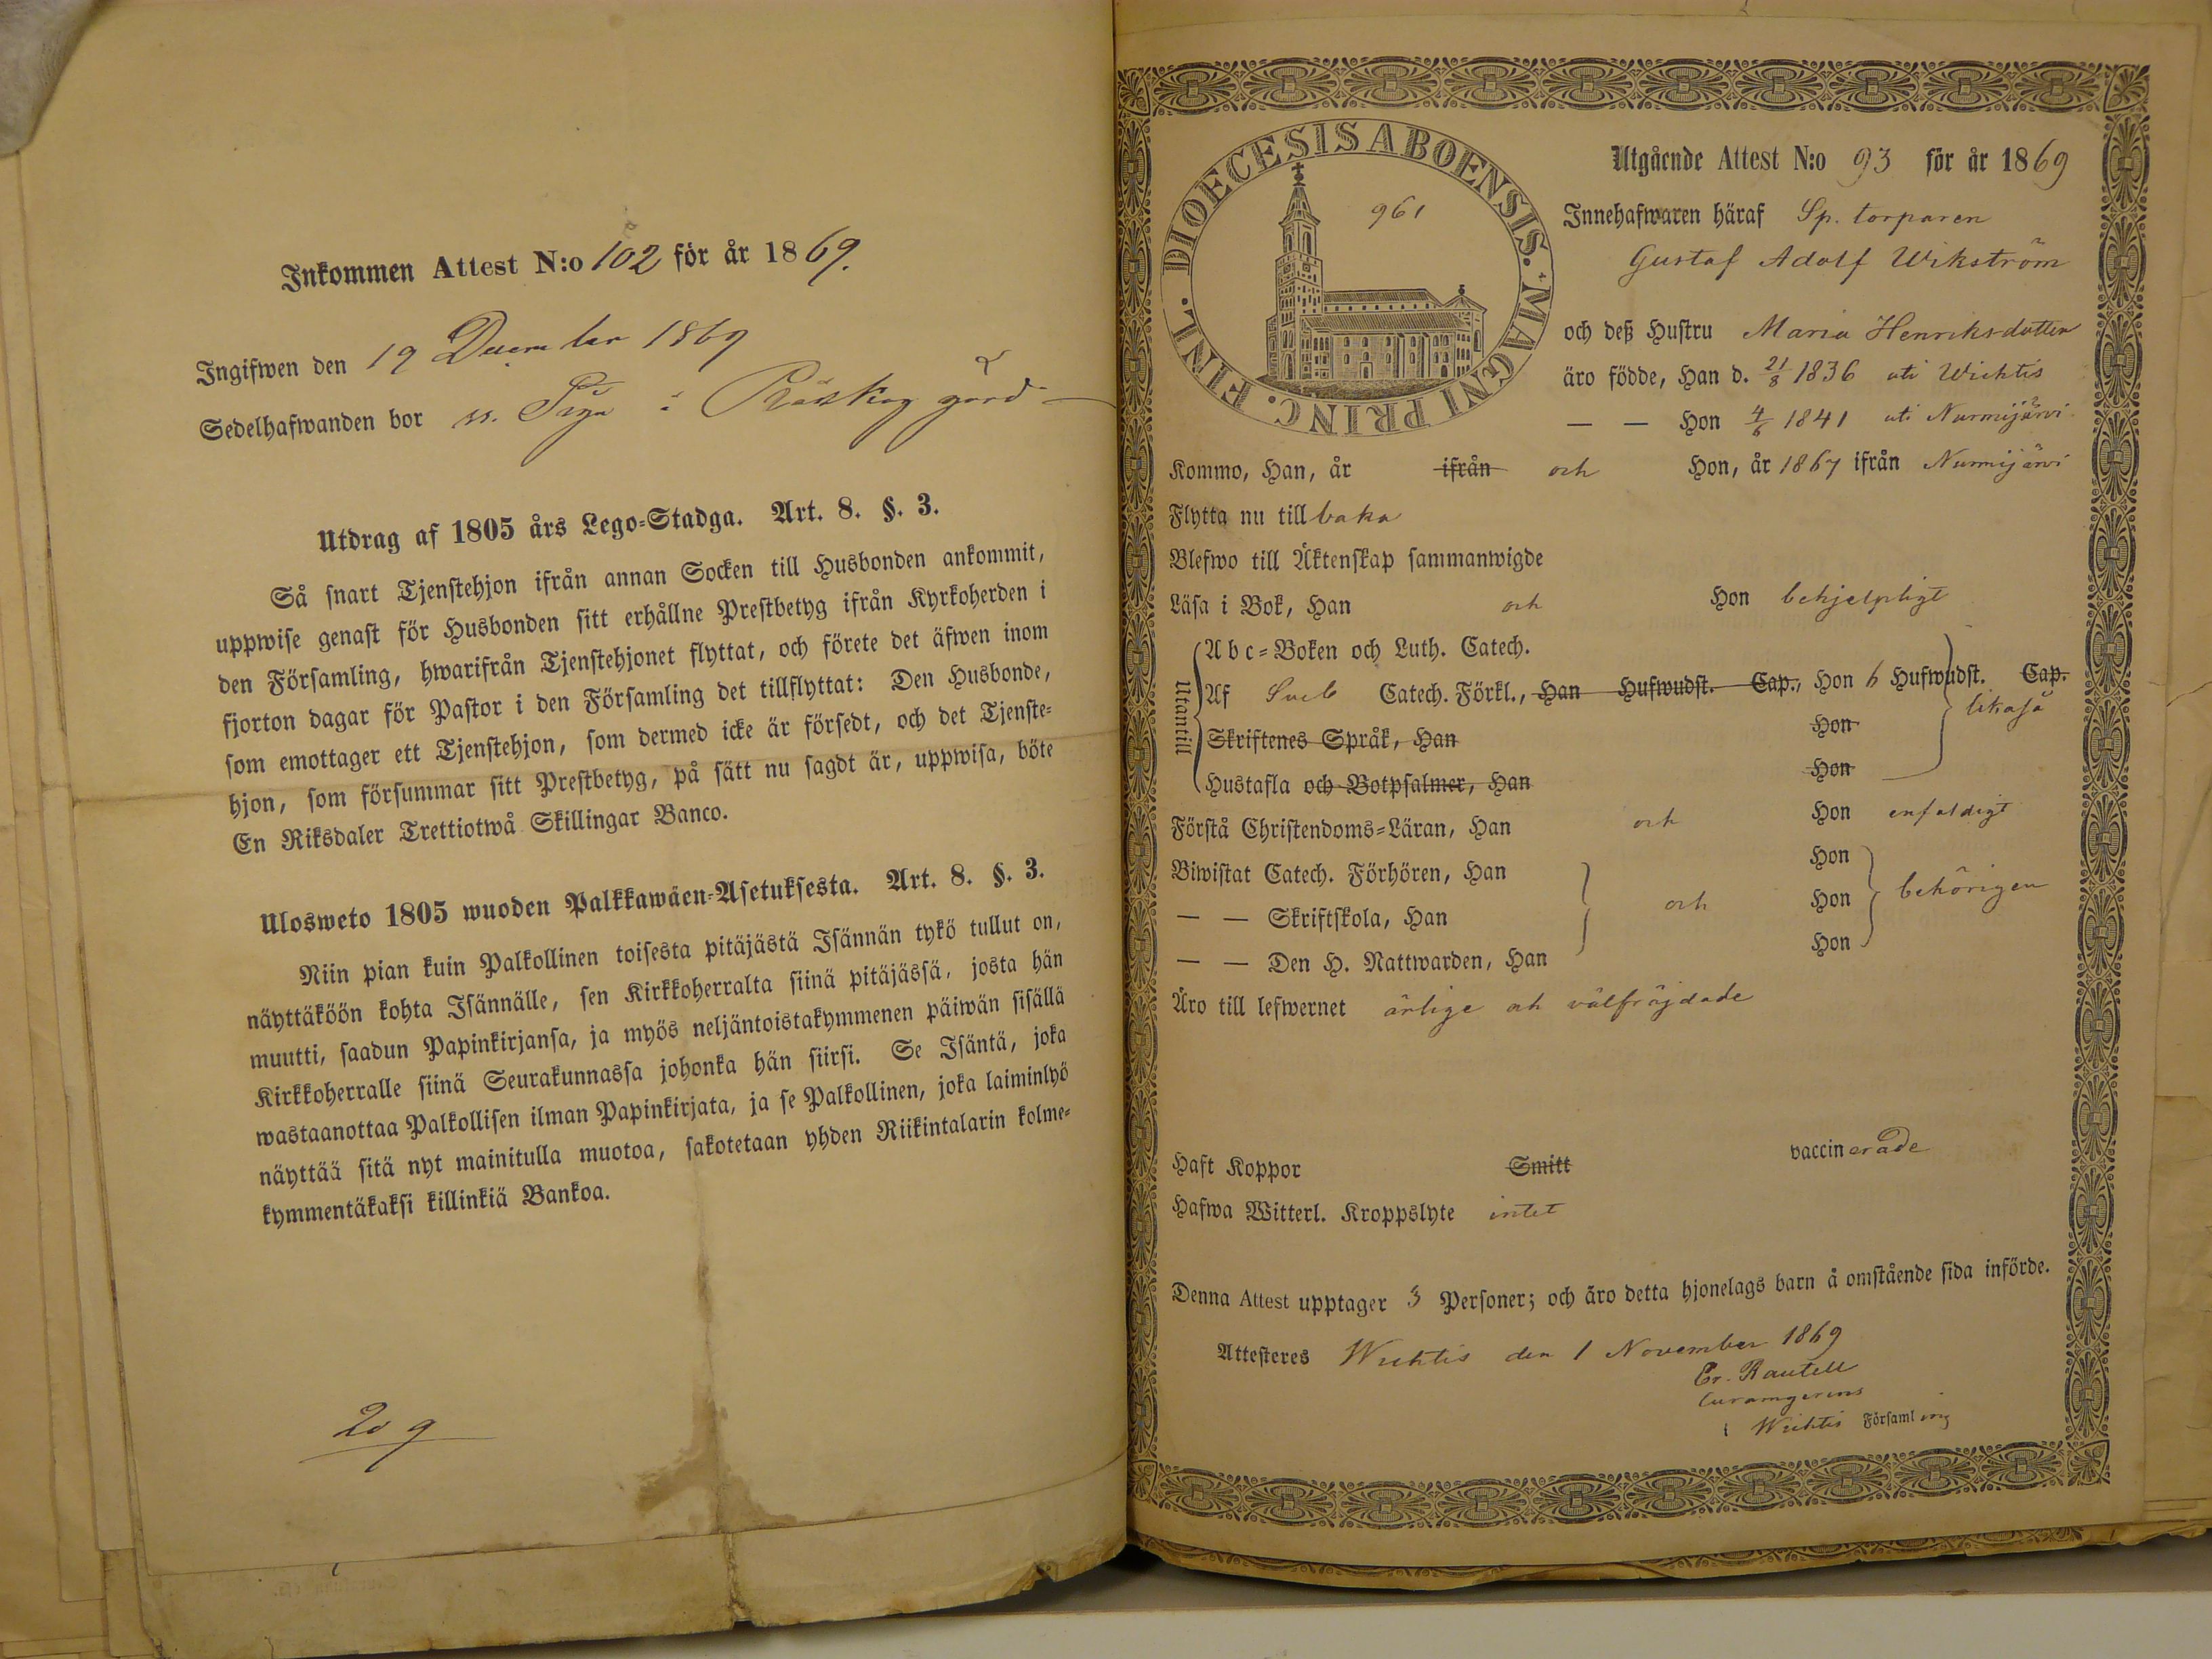 Inkommen Attest N:o 102 för år 1869.
Ingifwen den 19 December 1869
Sedelhafwanden bor gård
Utdrag af 1805 års Lego-Stadga. Art. 8. §. 3.
Så snart Tjenstehjon ifrån annan Socken till Husbonden ankommit,
uppwise genast för Husbonden sitt erhållne Prestbetyg ifrån Kyrkoherden i
den Församling, hwarifrån Tjenstehjonet flyttat, och förete det äfwen inom
fjorton dagar för Pastor i den Församling det tillflyttat: Den Husbonde,
som emottager ett Tjenstehjon, som dermed icke är försedt, och det Tjenste-
hjon, som försummar sitt Prestbetyg, på sätt nu sagdt är, uppwisa, böte
En Riksdaler Trettiotwå Skillingar Banco.
Ulosweto 1805 wuoden Palkkawäen-Asetuksesta. Art. 8. §. 3.
Niin pian kuin Palkollinen toisesta pitäjästä Isännän tykö tullut on,
näyttäköön kohta Isännälle, sen Kirkkoherralta siinä pitäjässä, josta hän
muutti, saadun Papinkirjansa, ja myös neljäntoistakymmenen päiwän sisällä
Kirkkoherralle siinä Seurakunnassa johonka hän siirsi. Se Isäntä, joka
wastaanottaa Palkollisen ilman Papinkirjata, ja se Palkollinen, joka laiminlyö
näyttää sitä nyt mainitulla muotoa, sakotetaan yhden Riikintalarin kolme-
kymmentäkaksi killinkiä Bankoa.
DIOECESIS ABOENSIS. MAGNI PRINC. FINL.
961
Utgående Attest N:o 93 för år 1869
Innehafwaren häraf Sp. torparen
Gustaf Adolf Wikström
och deß Hustru Maria Henriksdotter
äro födde, Han d. 21/8 1836 uti Wichtis
— — Hon 4/6 1841 uti Nurmijärvi
Kommo, Han, år ifrån och Hon, år 1867 ifrån Nurmijärvi
Flytta nu tillbaka
Blefwo till Äktenskap sammanwigde
Läsa i Bok, Han och Hon behjelpligt
Utantill
Abc-Boken och Luth. Catech.
Af Sveb Catech. Förkl., Han Hufwudst. Cap., Hon 6 Hufwudst. Cap.
likaså
Skriftenes Språk, Han Hon
Hustafla och Botpsalmer, Han Hon
Förstå Christendoms-Läran, Han och Hon enfaldigt
Biwistat Catech. Förhören, Han Hon
— — Skriftskola, Han och Hon behörigen
— — Den H. Nattwarden, Han Hon
Äro till lefwernet ärlige och välfräjdade
Haft Koppor Smitt vaccinerade
Hafwa Witterl. Kroppslyte intet
Denna Attest upptager 3 Personer; och äro detta hjonelags barn å omstående sida införde.
Attesteres Wichtis den 1 November 1869
Rautell
i Wichtis Församling